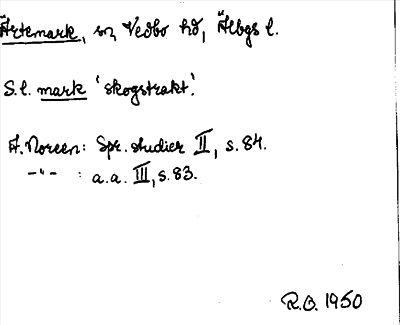 Ärtemark, sn, Vedbo hd, Älbgs l.
S.l. mark 'skogstrakt'.
A. Noreen: Spr. studier II, s. 84.
-"- : a.a. III, s. 83.
R.O. 1950